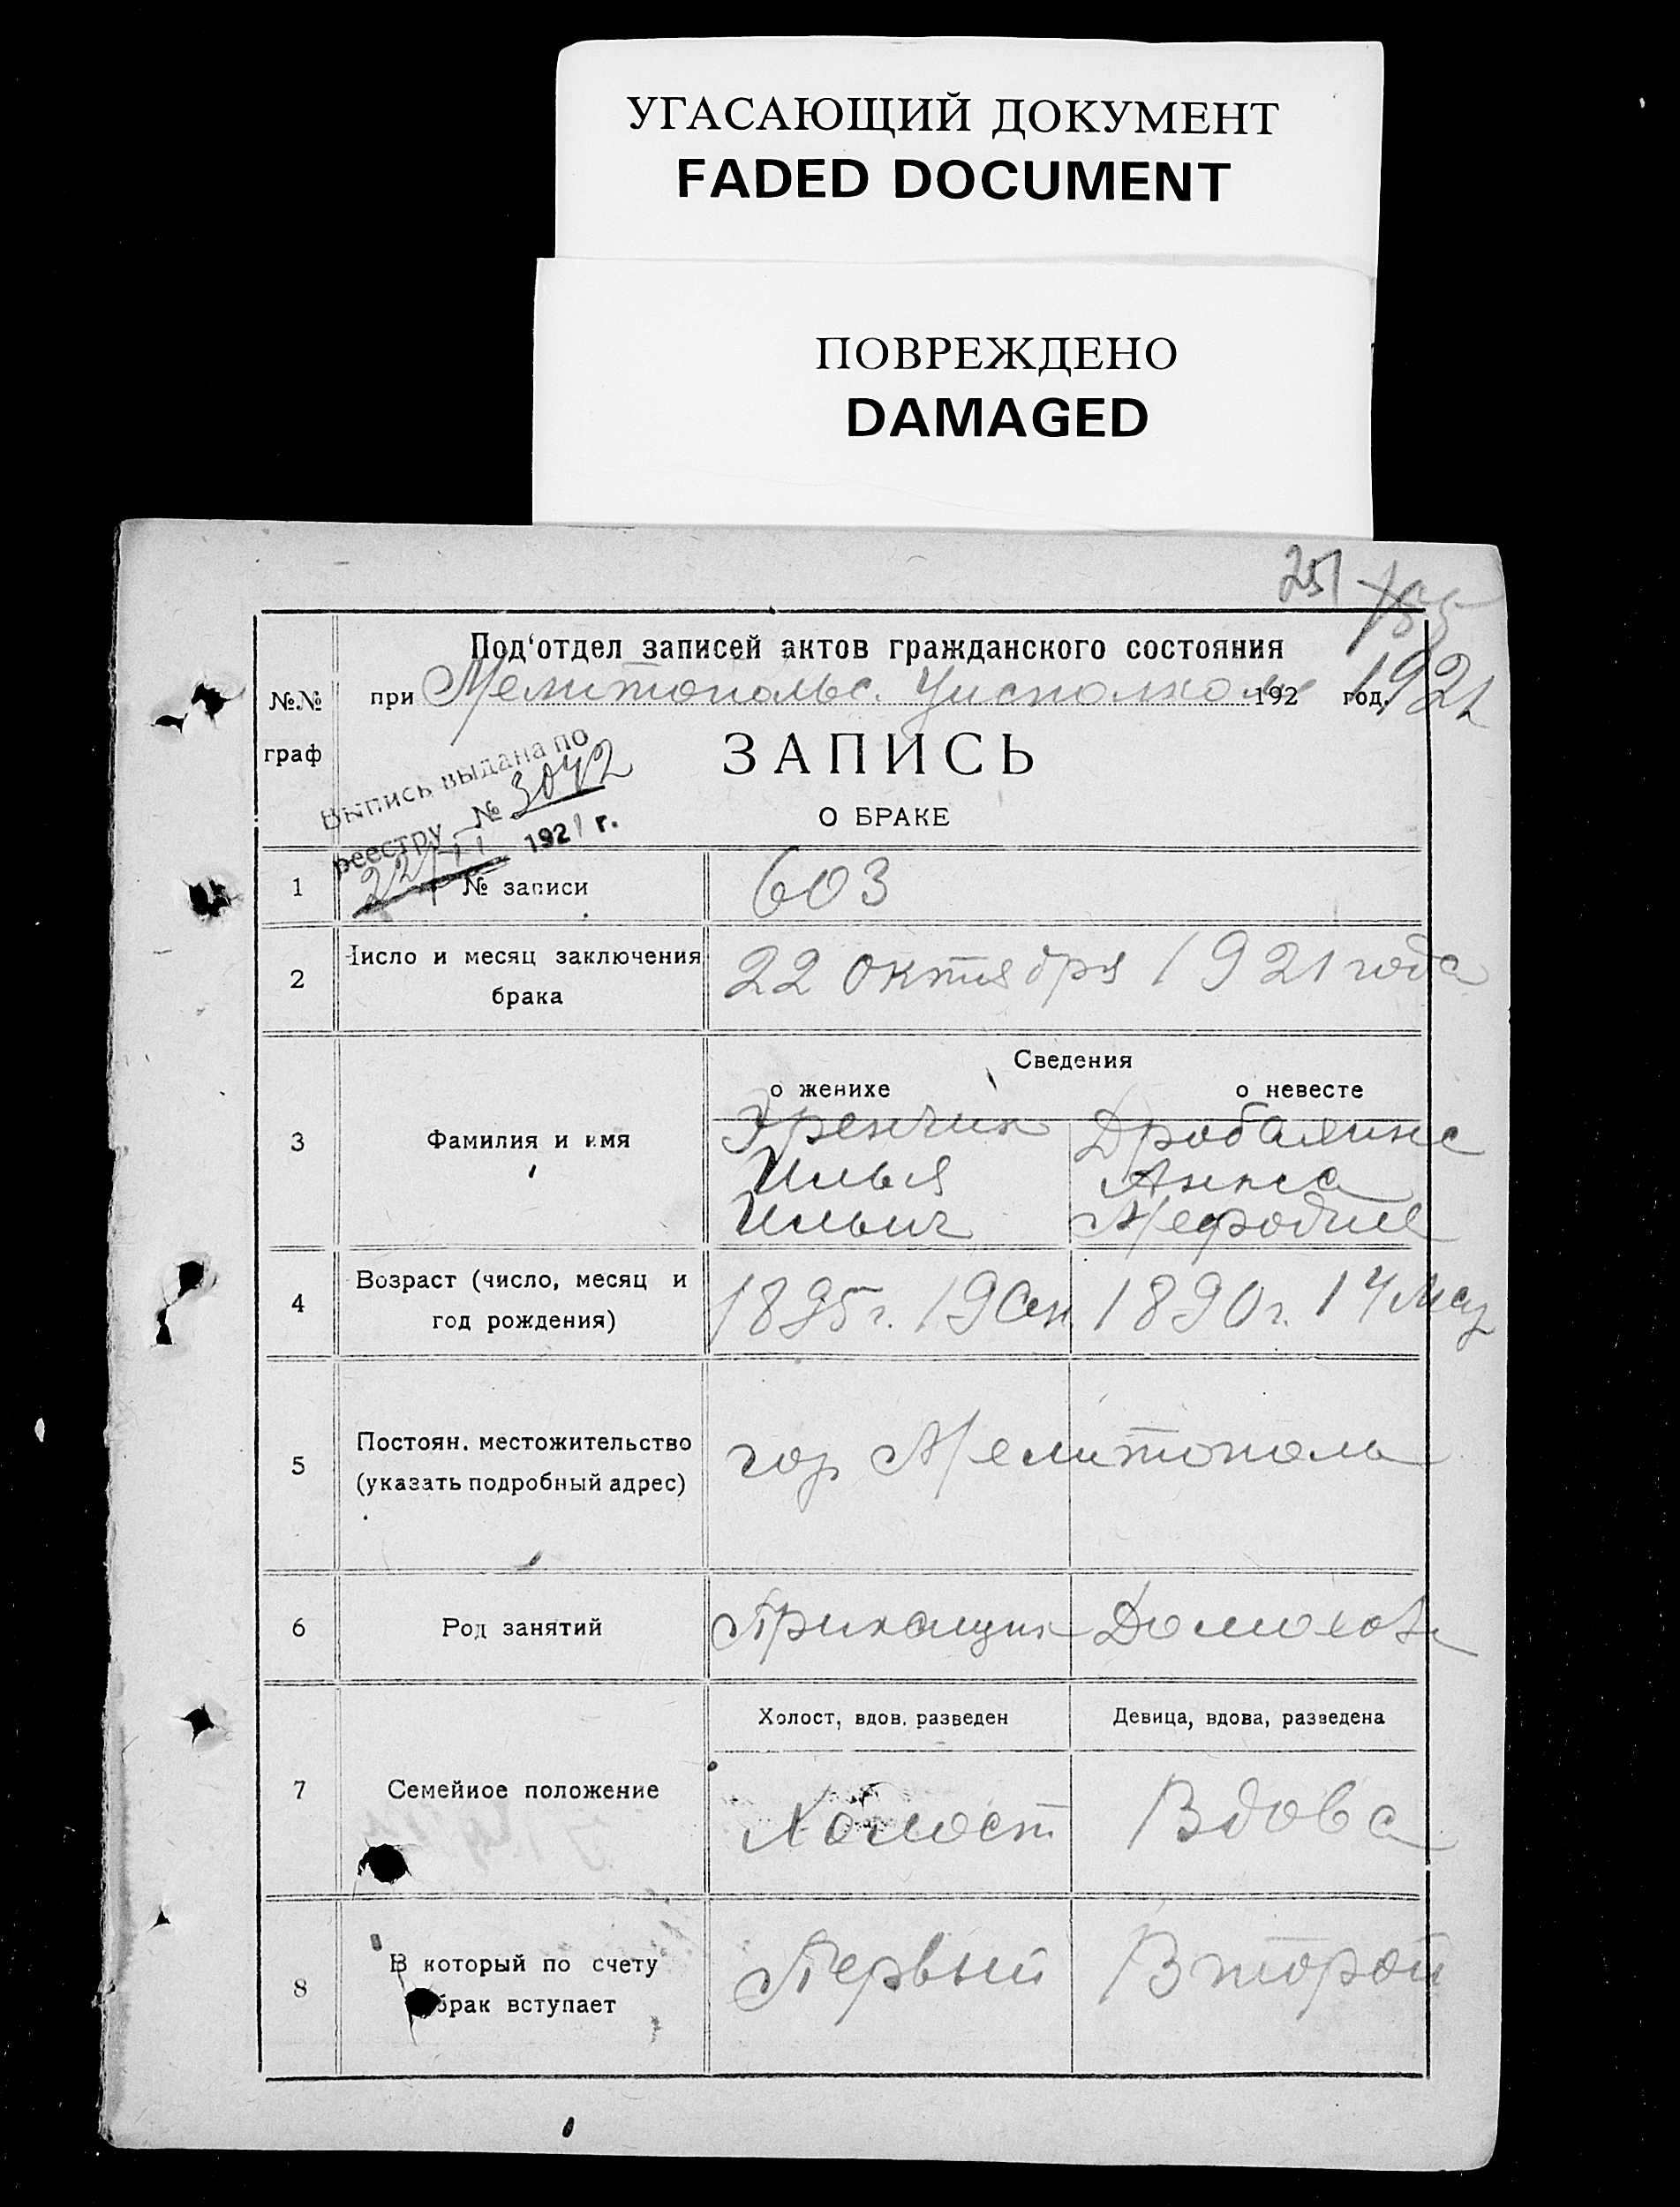 УГАСАЮЩИЙ ДОКУМЕНТ
FADED DOCUMENT
ПОВРЕЖДЕНО
DAMAGED
251
Под‘отдел записей актов гражданского состояния
№№
граф
при Мелитопольс. Уисполкоме 192 год. 1921
Выпись выдана по
реестру № 3042
22/XI 1921 г.
ЗАПИСЬ
О БРАКЕ
1 № записи 603
2 Число и месяц заключения
брака
22 октября 1921 года
Сведения
о женихе о невесте
3 Фамилия и имя
Дробязина
Илья Анна
Ильич Мефодие
4 Возраст (число, месяц и
год рождения)
1895 г. 19 Сен 1890 г. 14 Мая
5 Постоян. местожительство
(указать подробный адрес)
гор Мелитополь
6 Род занятий Приказчик Домохоз
Холост, вдов. разведен Девица, вдова, разведена
7 Семейное положение Холост Вдова
8 В который по счету
брак вступает
Первый Второй